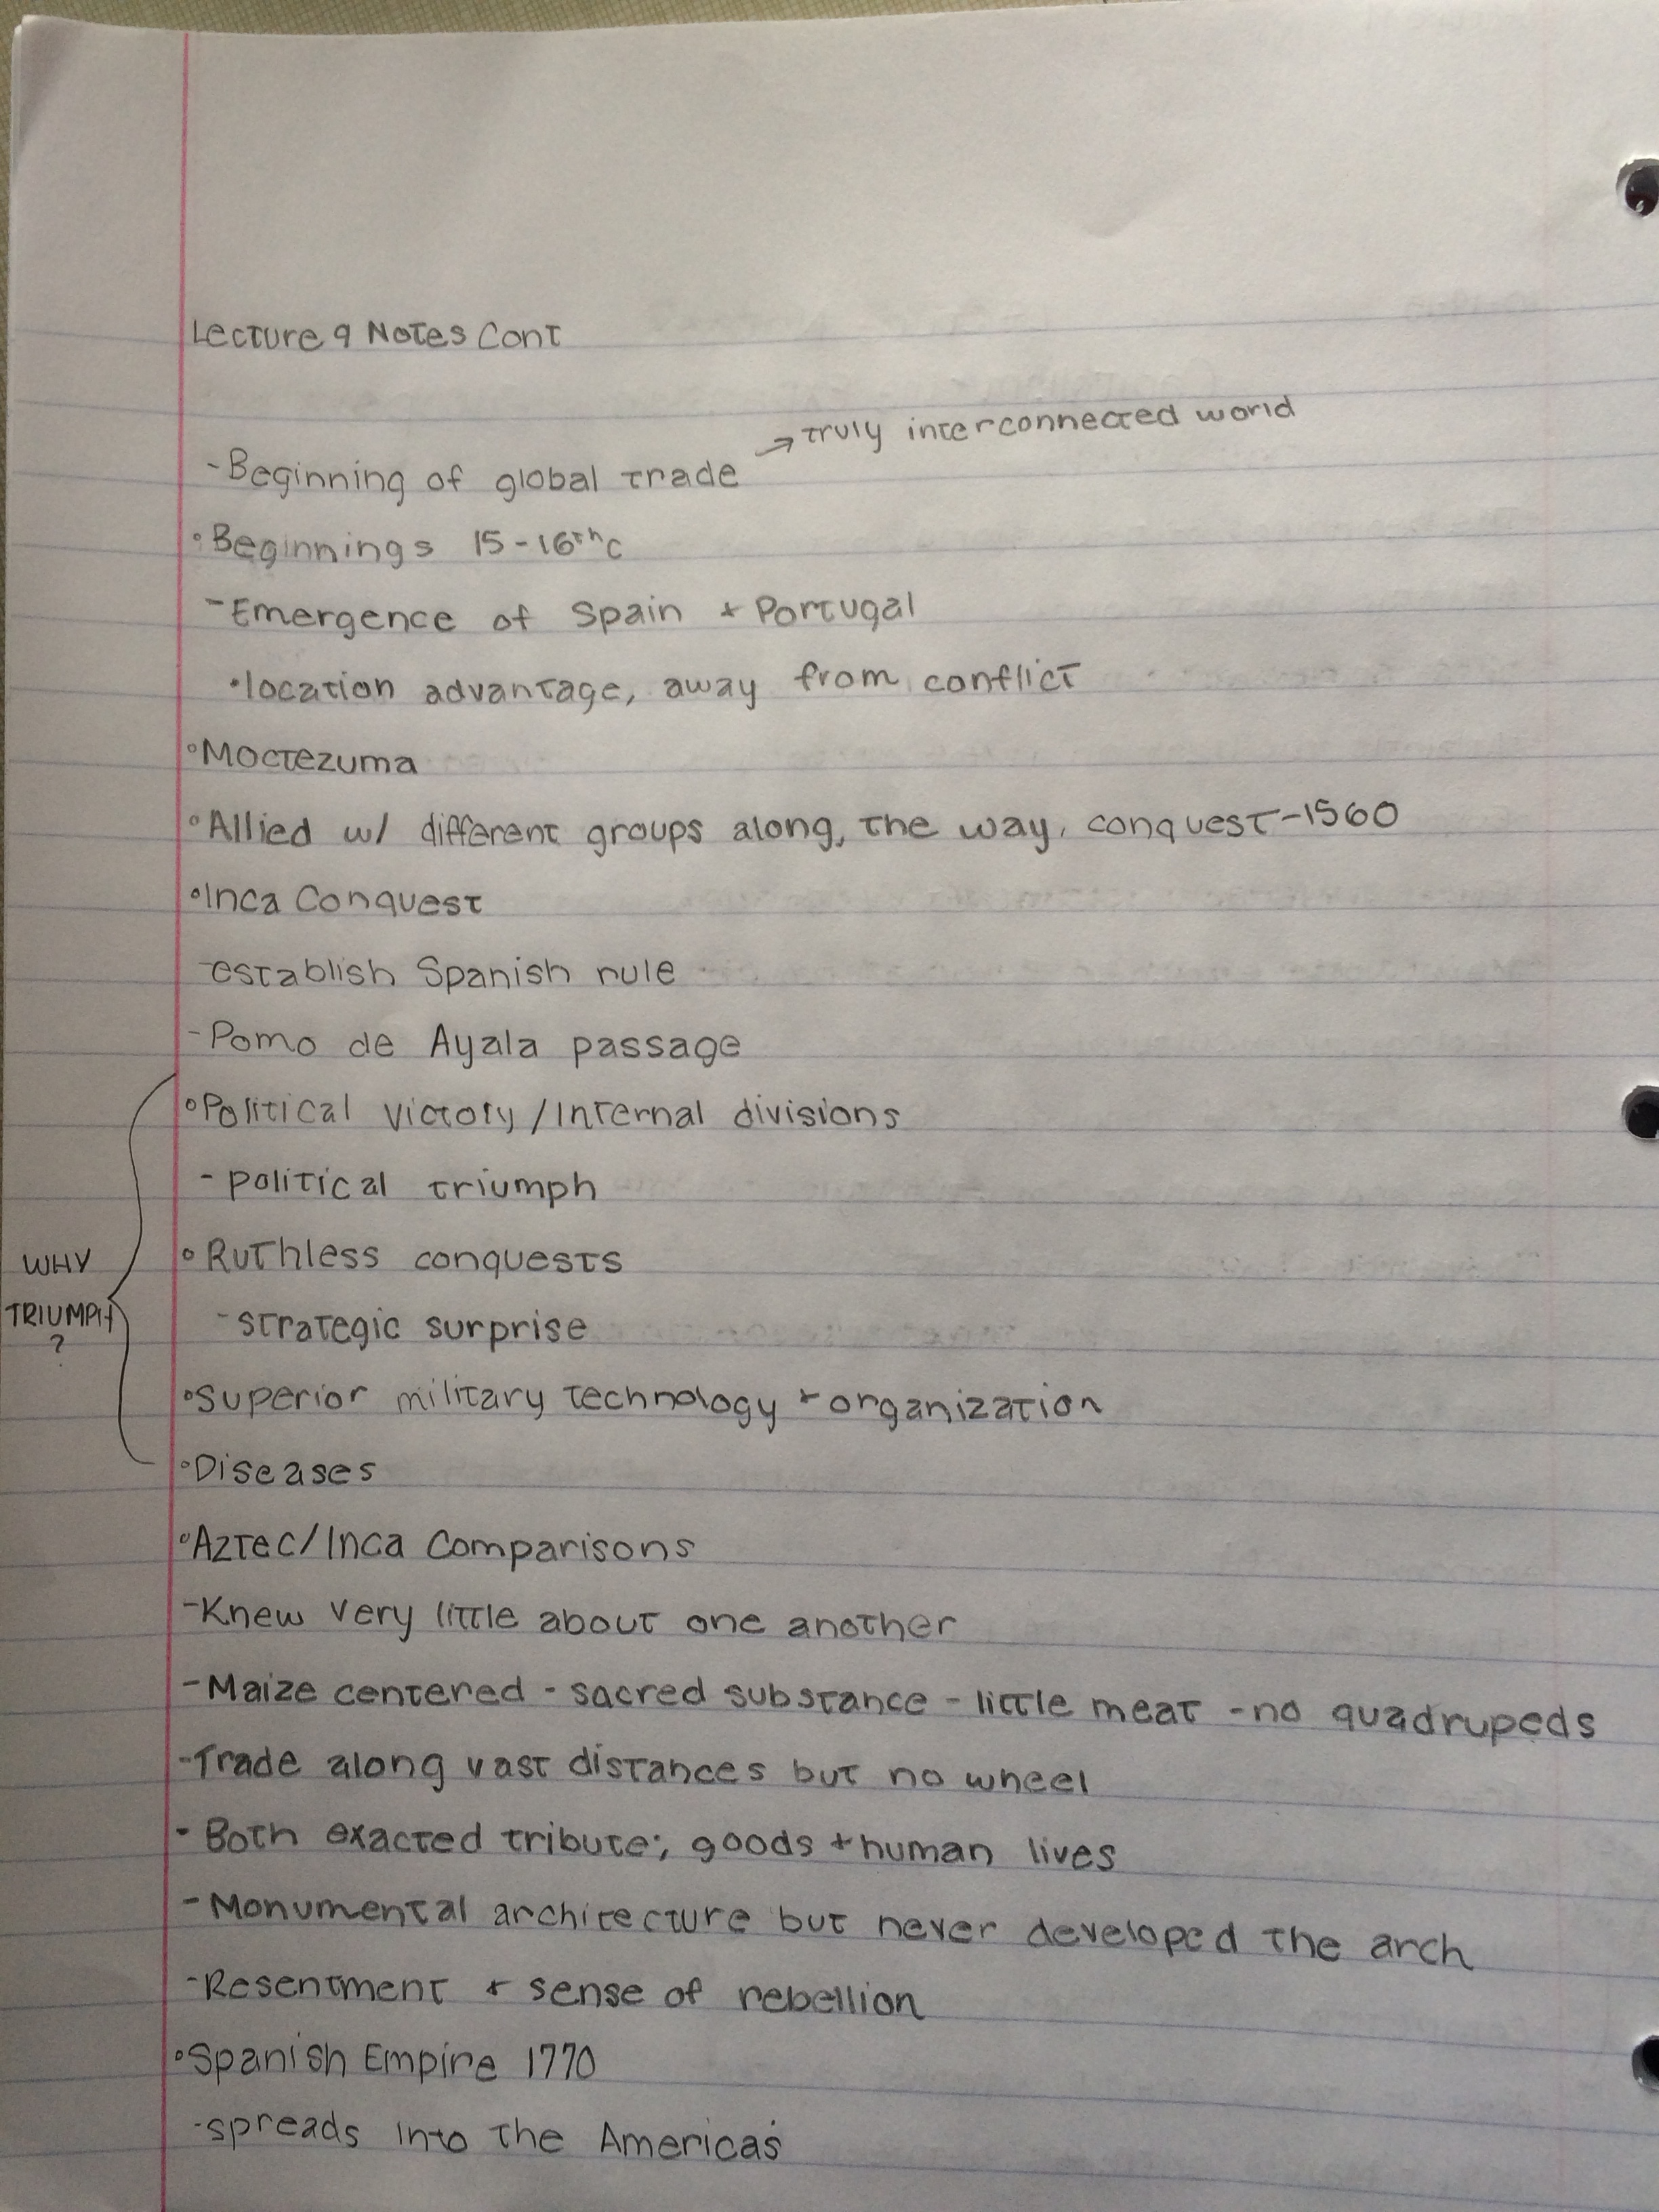 Lecture 9 Notes Cont
→ truly interconnected world
- Beginning of global trade
• Beginnings 15-16th c
- Emergence of Spain + Portugal
• location advantage, away from conflict
• Moctezuma
• Allied w/ different groups along, the way, conquest-1560
• Inca Conquest
- establish Spanish rule
- Pomo de Ayala passage
• Political victory / Internal divisions
- political triumph
• Ruthless conquests
WHY
- strategic surprise
TRIUMPH
?
• Superior military technology + organization
• Diseases
• Aztec/Inca Comparisons
- Knew very little about one another
- Maize centered - sacred substance - little meat - no quadrupeds
- Trade along vast distances but no wheel
- Both exacted tribute; goods + human lives
- Monumental architecture but never developed the arch
- Resentment + sense of rebellion
• Spanish Empire 1770
- spreads into the Americas